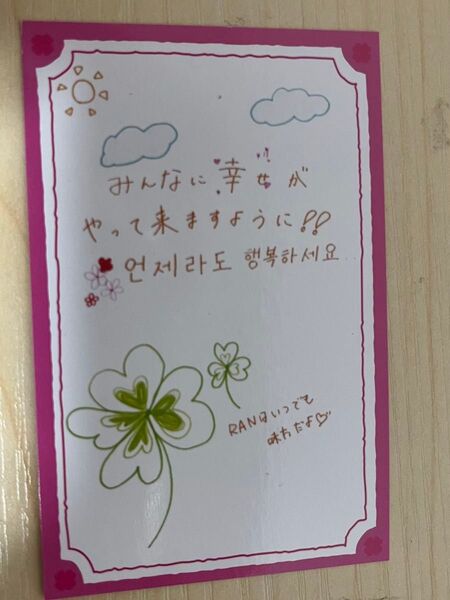 みんなに幸せが
やって来ますように!!
언제라도 행복하세요
RANはいつでも
味方だよ♡